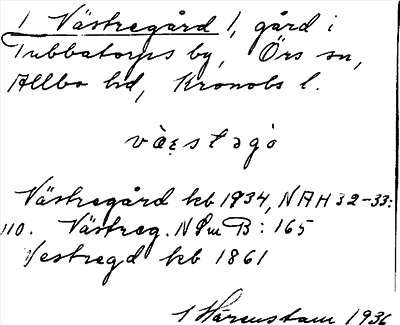 1 Västregård 1, gård i
Tubbatorps by, Örs sn,
Allbo hd, Kronobs l.
Västregård kb 1934, NAH 32-33:
110. Västreg. NSm B: 165
Vestregd kb 1861
Härenstam 1936